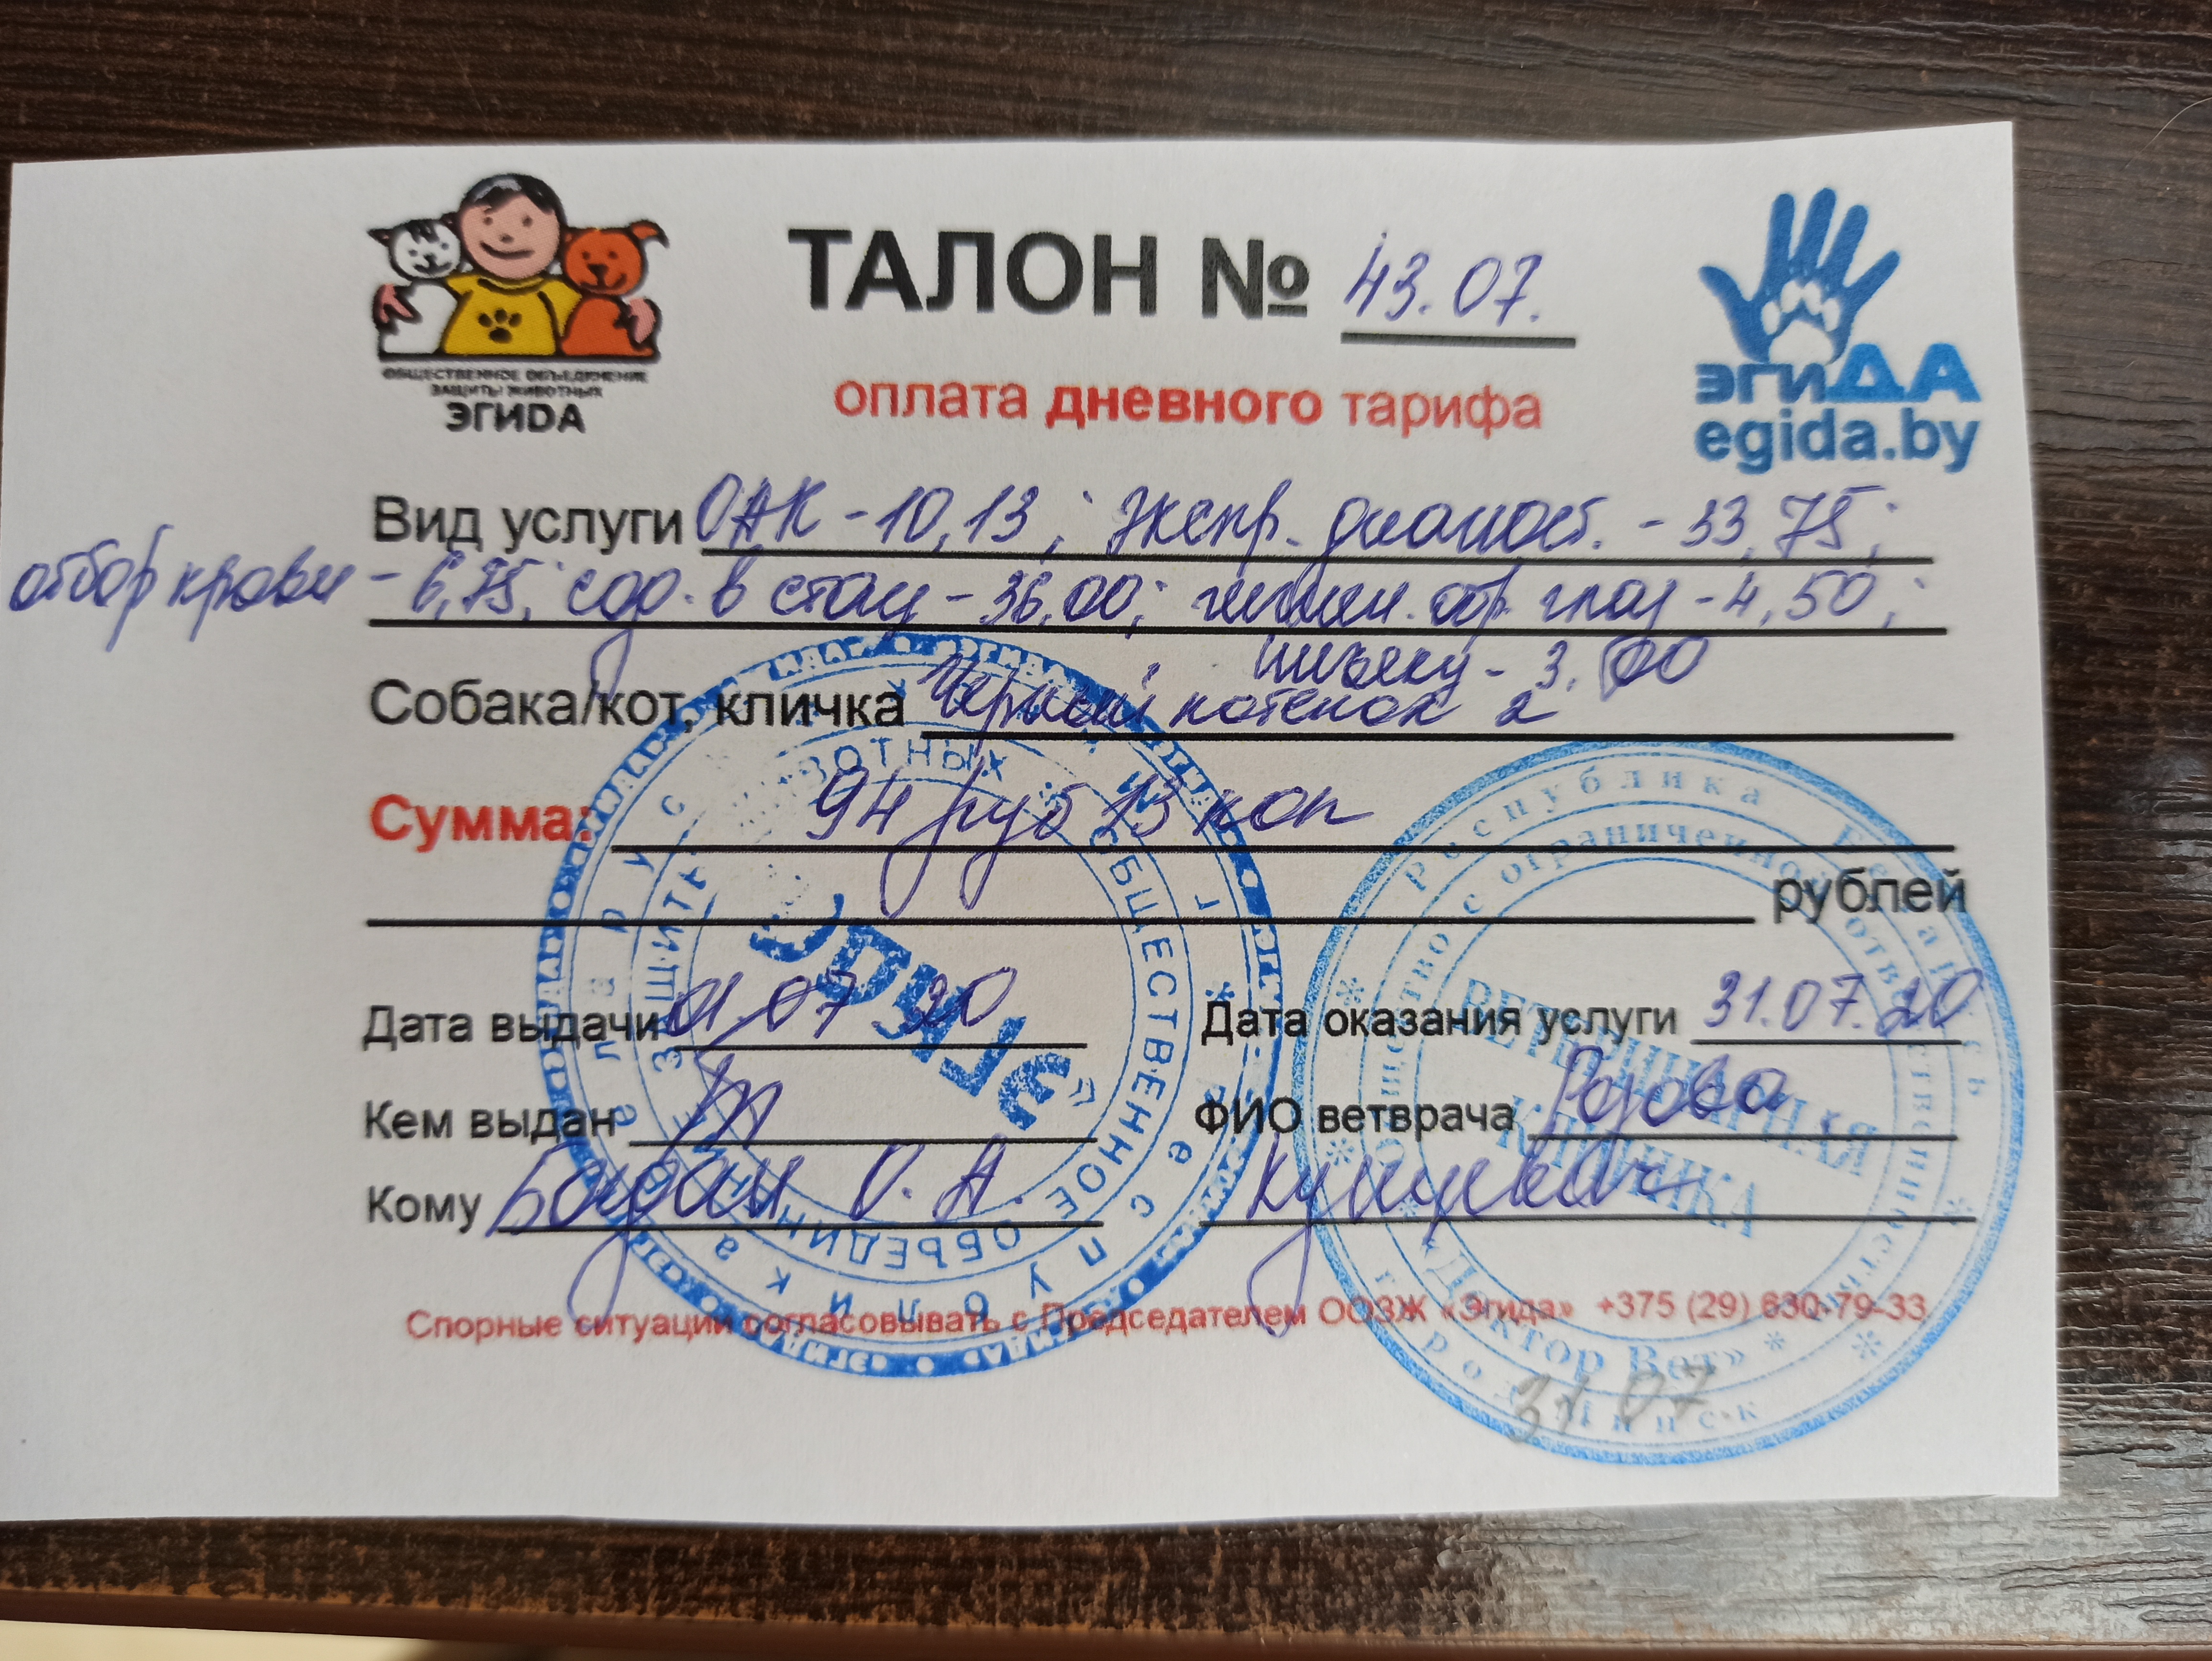 ОБЩЕСТВЕННОЕ ОБЪЕДИНЕНИЕ
ЗАЩИТЫ ЖИВОТНЫХ
ЭГИДА
ТАЛОН № 43.07.
оплата дневного тарифа
эгиДА
egida.by
Вид услуги ОАК - 10,13; экспр. диагност. - 33,75;
отбор крови - 6,75; сод. в стац - 36,00; гигиен. обр. глаз - 4,50;
- 3,00
Собака/кот, кличка Черный котенок 2
Сумма: 94 руб 13 коп
рублей
Дата выдачи 01.07.20
Дата оказания услуги 31.07.20
Кем выдан
ФИО ветврача
Кому О. А.
Спорные ситуации согласовывать с Председателем ООЗЖ «Эгида» +375 (29) 630-79-33
Республика Беларусь
Общество с ограниченной ответственностью
ВЕТЕРИНАРНАЯ
КЛИНИКА
«Доктор Вет»
город Минск
31 07
Республика Беларусь
ОБЩЕСТВЕННОЕ ОБЪЕДИНЕНИЕ ЗАЩИТЫ ЖИВОТНЫХ
"Эгида"